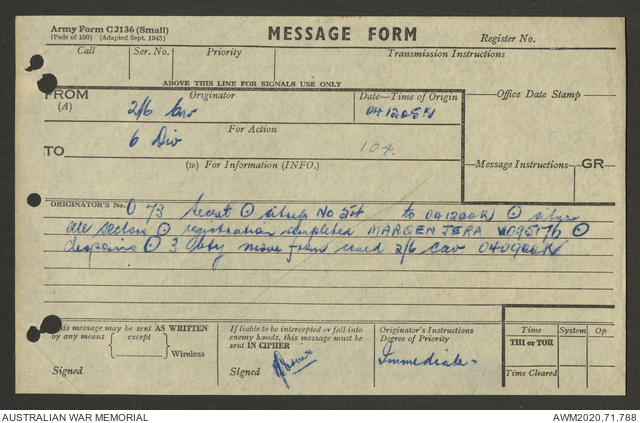 Army Form C2136 (Small)
(Pads of 100) (Adapted Sept. 1943)
MESSAGE FORM
Register No.
Call Ser. No. Priority Transmission Instructions
ABOVE THIS LINE FOR SIGNALS USE ONLY
FROM Originator Date—Time of Origin Office Date Stamp
(A) 2/6 Cav 041205K
For Action
TO 6 Div 104.
(w) For Information (INFO.) Message Instructions GR
ORIGINATOR'S No. O 73 Secret ⊙ sitrep No 54 to 041200K ⊙
all sectors ⊙ registration completed MARGEN JERA ⊙
⊙ 3 move from 2/6 Cav 040900K
This message may be sent AS WRITTEN
by any means except
Wireless
Signed
If liable to be intercepted or fall into
enemy hands, this message must be
sent IN CIPHER
Signed
Originator's Instructions
Degree of Priority
Immediate-
Time System Op
THI or TOR
Time Cleared
AUSTRALIAN WAR MEMORIAL AWM2020.71.788